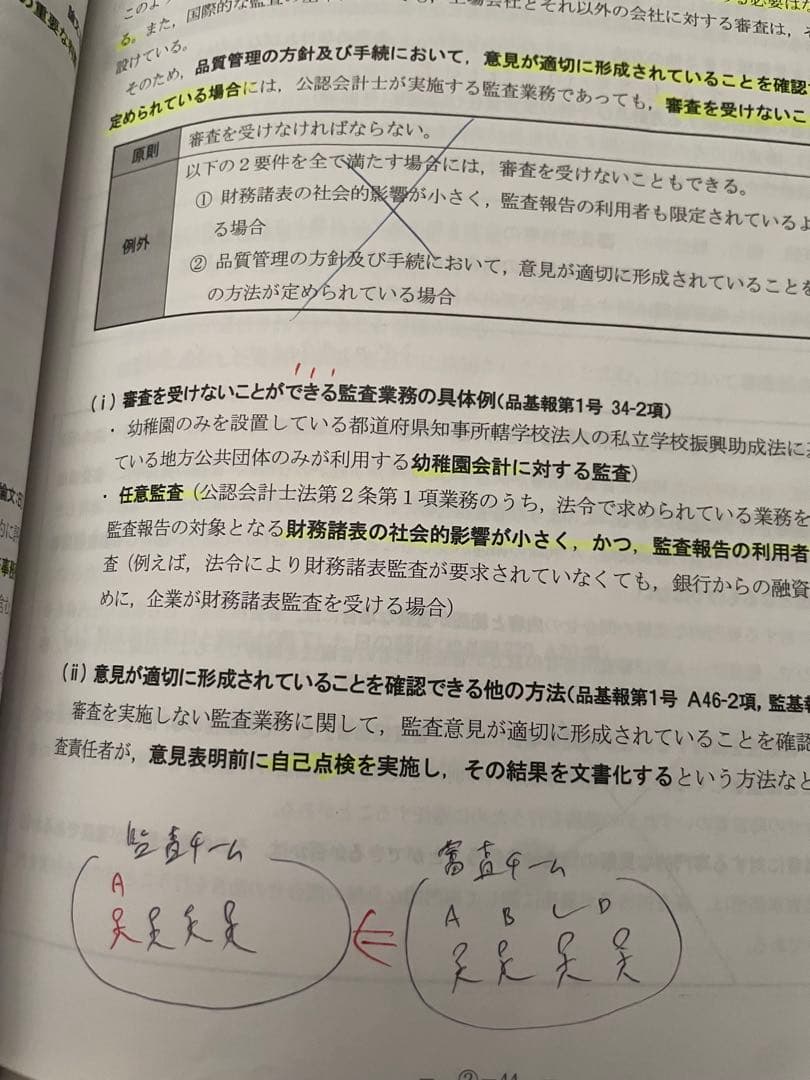 る。また,国際的な監査の
上場会社とそれ以外の会社に対する審査は,
設けている。
そのため,品質管理の方針及び手続において,意見が適切に形成されていることを確認
定められている場合には,公認会計士が実施する監査業務であっても,審査を受けないこ
原則 審査を受けなければならない。
例外 以下の2要件を全て満たす場合には,審査を受けないこともできる。
① 財務諸表の社会的影響が小さく,監査報告の利用者も限定されているよ
る場合
② 品質管理の方針及び手続において,意見が適切に形成されていることを
の方法が定められている場合
(ⅰ)審査を受けないことができる監査業務の具体例(品基報第1号 34-2項)
・幼稚園のみを設置している都道府県知事所轄学校法人の私立学校振興助成法に
ている地方公共団体のみが利用する幼稚園会計に対する監査)
・任意監査(公認会計士法第2条第1項業務のうち,法令で求められている業務を
監査報告の対象となる財務諸表の社会的影響が小さく,かつ,監査報告の利用者
査(例えば,法令により財務諸表監査が要求されていなくても,銀行からの融資
めに,企業が財務諸表監査を受ける場合)
(ⅱ)意見が適切に形成されていることを確認できる他の方法(品基報第1号 A46-2項,監基報
審査を実施しない監査業務に関して,監査意見が適切に形成されていることを確認
査責任者が,意見表明前に自己点検を実施し,その結果を文書化するという方法など
監査チーム
審査チーム
A
A B C D
②-44